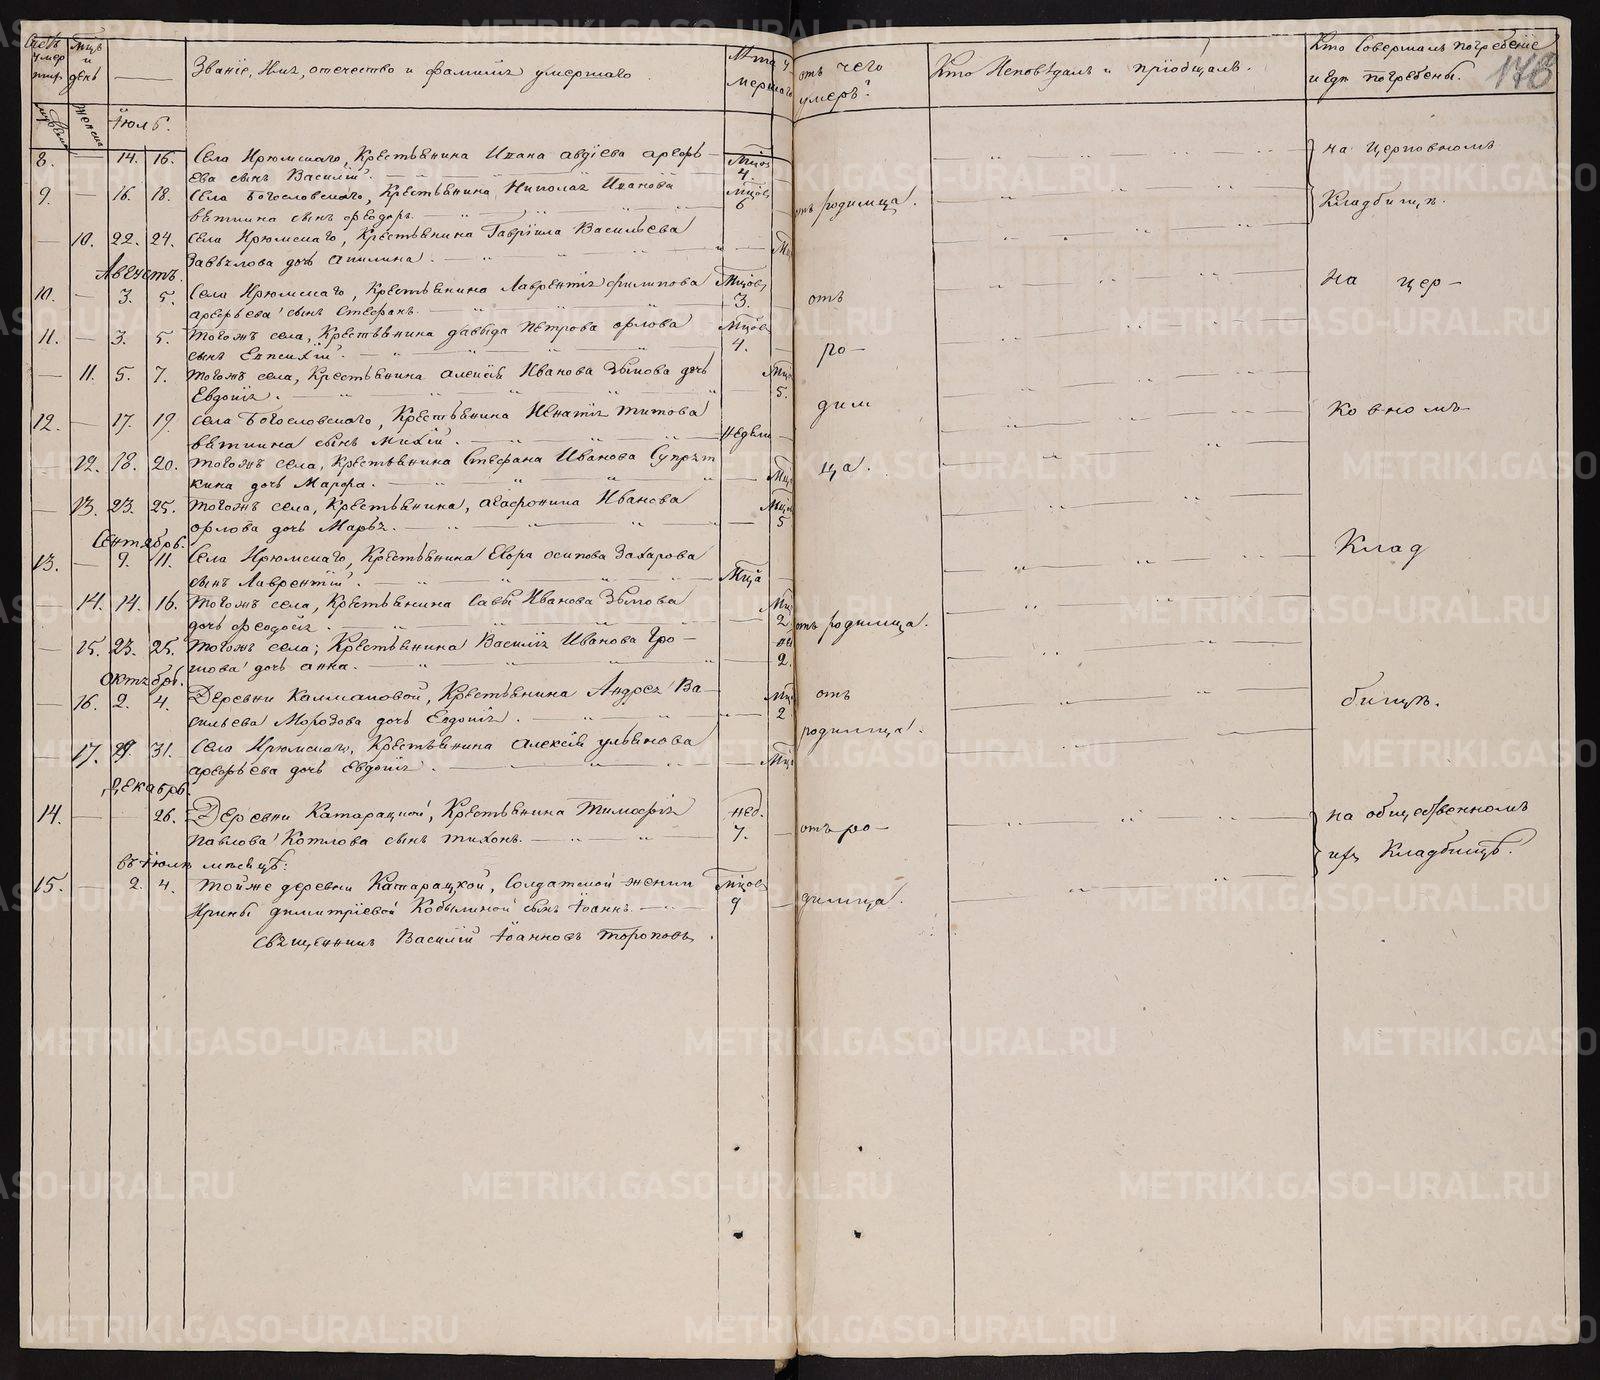 Счетъ умер
мцъ и день
Званіе, Имя, отечество и фамилія умершаго.
Лѣта умершаго
отъ чего умеръ?
Кто Исповѣдалъ и пріобщалъ.
Кто Совершалъ погребеніе и гдѣ погребены.
178
женска
Іюль.
8. — 14. 16. Села Ирюмскаго, Крестьянина Ивана Авдіева Арефь–
ева сынъ Василій. Мцов 4.
на Церковномъ
9. — 16. 18. Села Богословскаго, Крестьянина Николая Иванова
Вяткина сынъ Феодоръ. Мцов 6
отъ родимца.
Кладбищѣ.
— 10. 22. 24. Села Ирюмскаго, Крестьянина Гавріила Васильева
Завьялова дочь Акилина.
Августъ.
10. — 3. 5. Села Ирюмскаго, Крестьянина Лаврентія Филипова
Арефьева сынъ Стефанъ. Мцов 3.
отъ
на цер–
11. — 3. 5. Тогожъ села, Крестьянина Давыда Петрова Орлова
сынъ Евпсихій. Мцов 4.
ро–
— 11. 5. 7. Тогожъ села, Крестьянина Алексія Иванова Зыкова дочь
Евдокія. 5.
дим
12. — 17. 19. Села Богословскаго, Крестьянина Игнатія Титова
Вяткина сынъ Михій. Недели
ковномъ
— 12. 18. 20. Тогожъ села, Крестьянина Стефана Иванова Супрят
кина дочь Марфа.
ца.
— 13. 23. 25. Тогожъ села, Крестьянина, Агафоника Иванова
Орлова дочь Марья. 5
Сентябрь.
13. — 9. 11. Села Ирюмскаго, Крестьянина Егора Осипова Захарова
сынъ Лаврентій. Мцa
Клад
— 14. 14. 16. Тогожъ села, Крестьянина Савы Иванова Зыкова
дочь Феодосія. 2.
отъ родимца.
— 15. 23. 25. Тогожъ села, Крестьянина Василія Иванова Гро–
мова дочь Анна. 2.
Октябрь.
— 16. 2. 4. Деревни Калмаковой, Крестьянина Андрея Ва–
сильева Морозова дочь Евдокія. 2
отъ
родимца.
бищѣ.
— 17. 29. 31. Села Ирюмскаго, Крестьянина Алексія Ульянова
Арефьева дочь Евдокія.
Декабрь.
14. — 26. Деревни Катарацкой, Крестьянина Тимофія
Павлова Котлова сынъ Тихонъ. нед. 7.
отъ ро–
на общественномъ
въ Іюлѣ мѣсяцѣ:
ихъ Кладбищѣ.
15. — 2. 4. Тойже деревни Катарацкой, Солдатской женки
Ирины Димитріевой Кобылиной сынъ Іоаннъ. Мцов 9
димца.
Священникъ Василій Іоанновъ Тороповъ.
METRIKI.GASO-URAL.RU